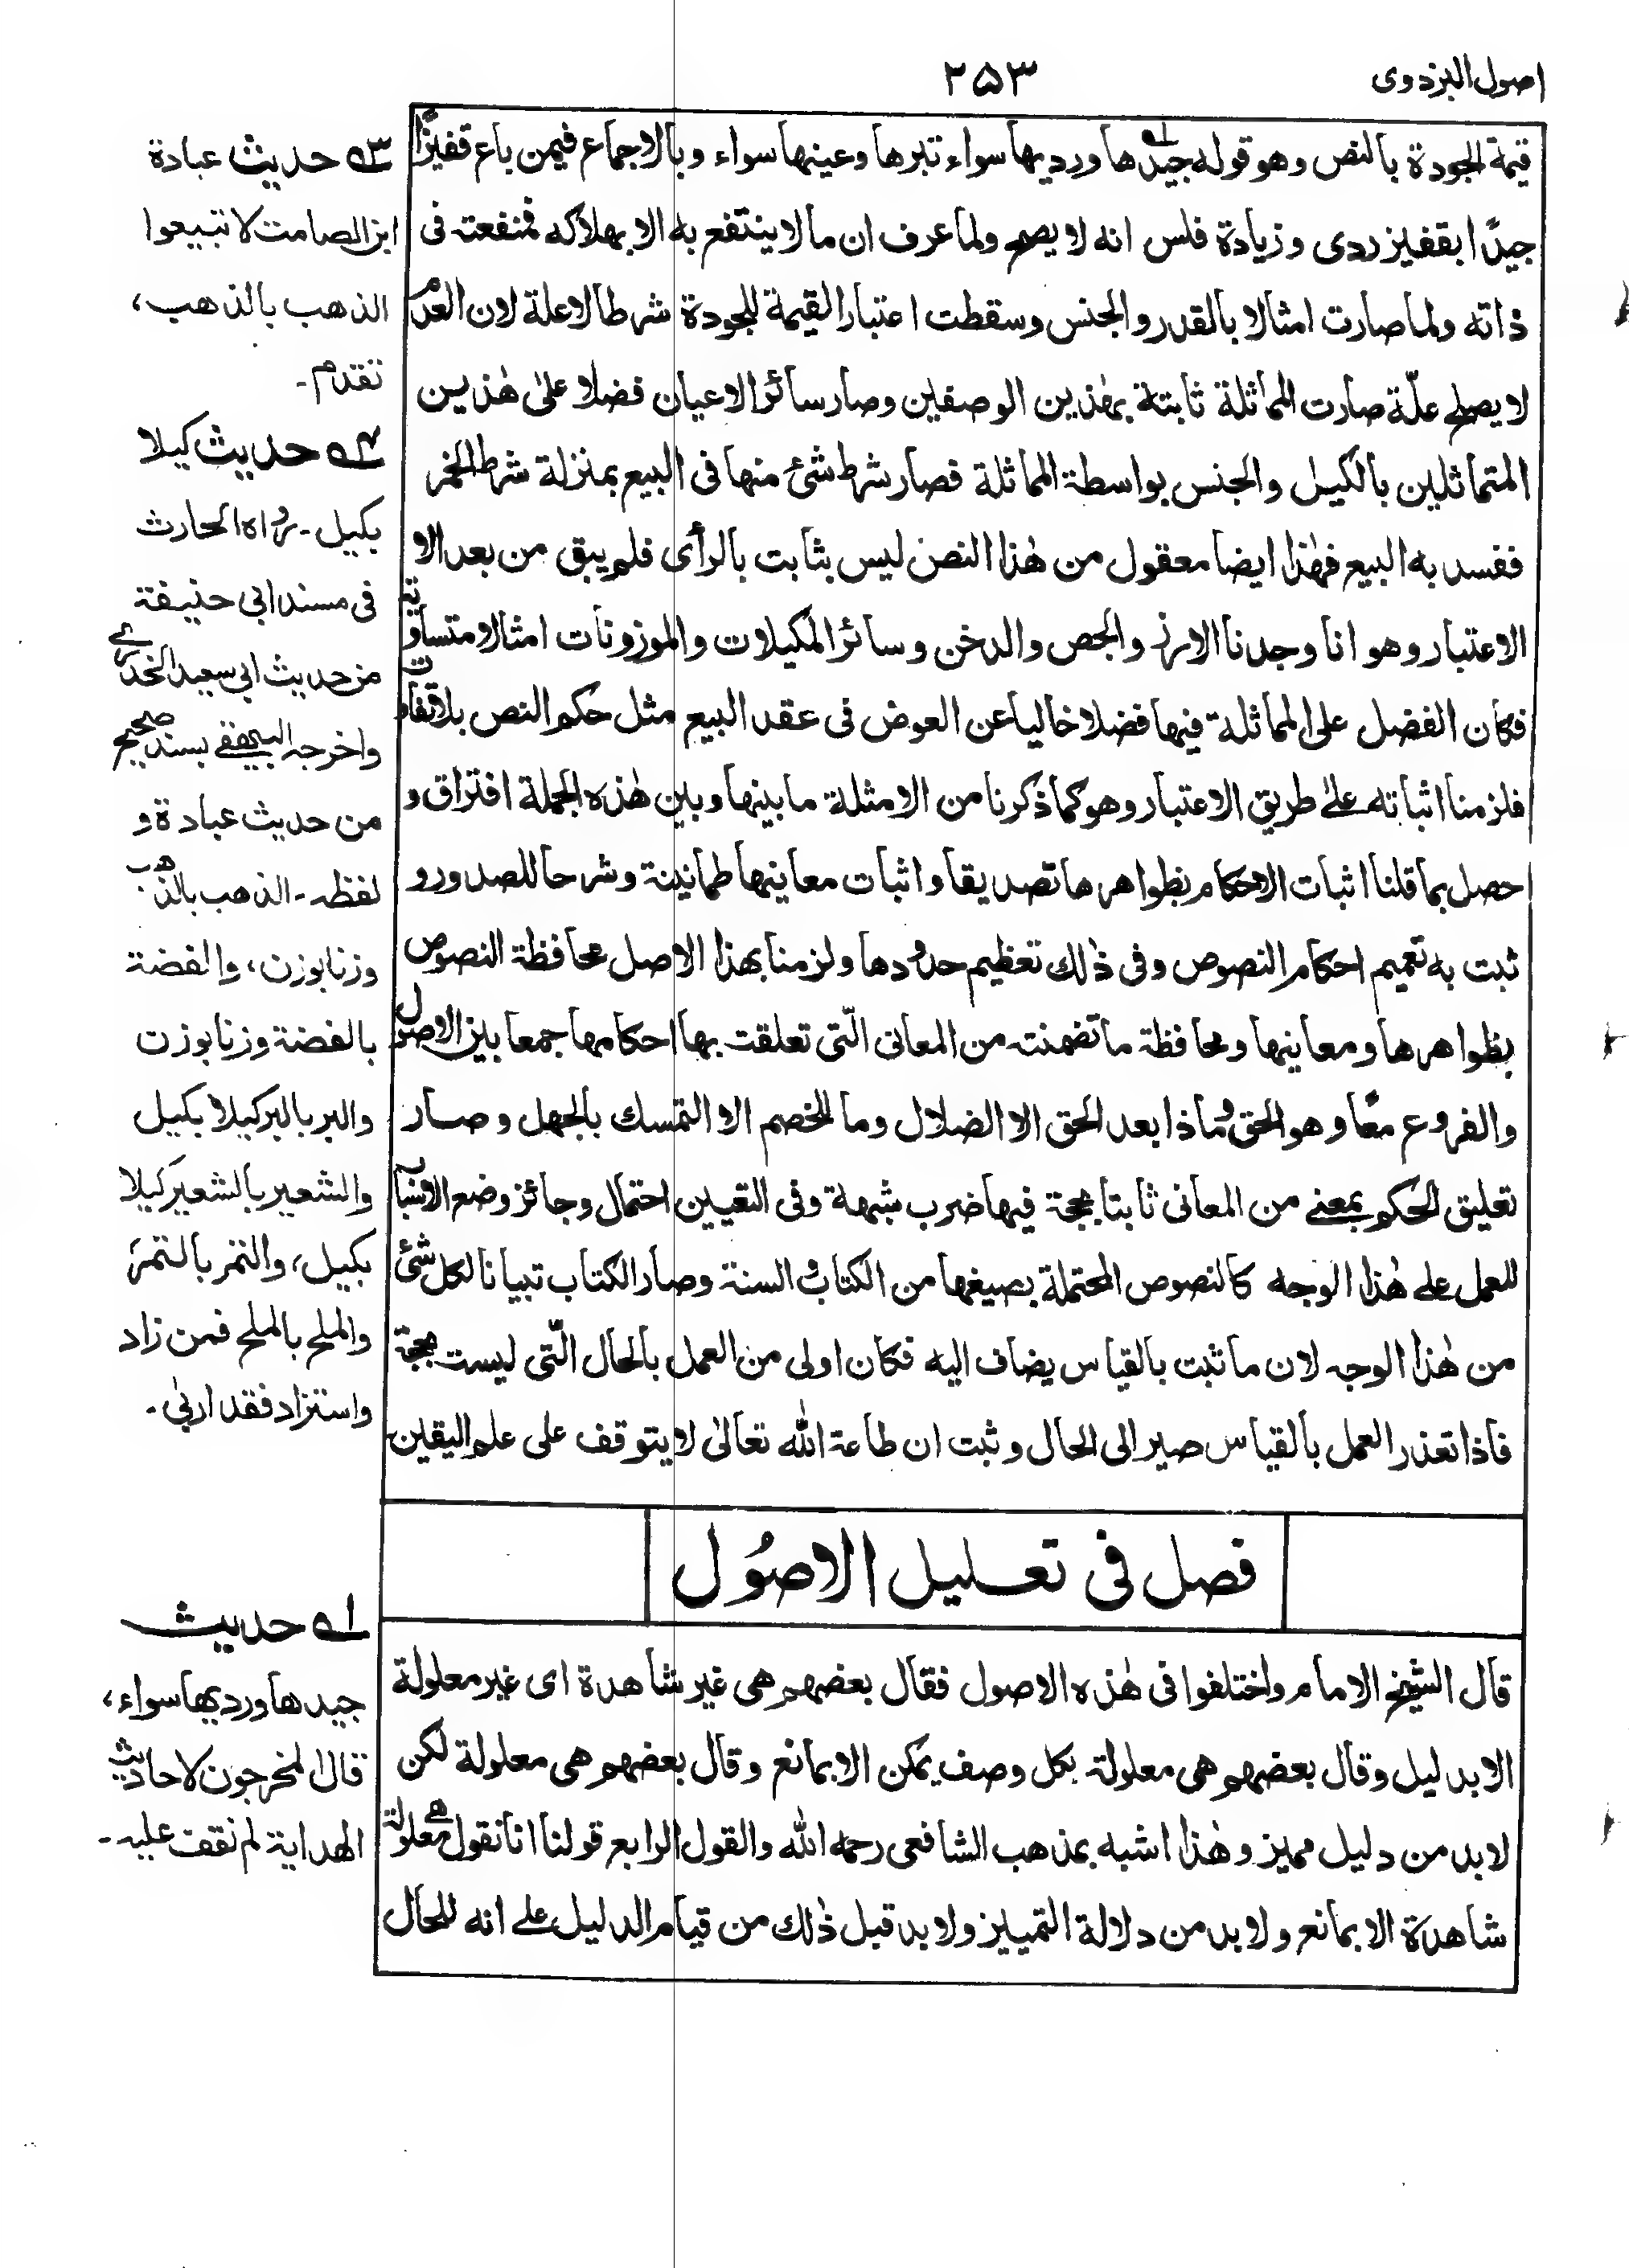 اصول البزدوی
۲۵۳
قیمة الجودة بالنص وهو قوله جیدها وردیها سواء تبرها وعینها سواء وبالاجماع فیمن باع قفیزًا
جیدًا بقفیز ردی وزیادة فلس انه لا یصح ولما عرف ان ما لا ینتفع به الا بهلاکه فمنفعته فی
ذاته ولما صارت امثالا بالقدر والجنس وسقطت اعتبار القیمة للجودة شرطا لا علة لان العدم
لا یصلح علّة صارت المماثلة ثابتة بهٰذین الوصفین وصار سائر الاعیان فضلا علیٰ هٰذین
المتماثلین بالکیل والجنس بواسطة المماثلة فصار شرط شئ منها فی البیع بمنزلة شرط الخمر
ففسد به البیع فهٰذا ایضا معقول من هٰذا النص لیس بثابت بالرأی فلم یبق من بعد الا
الاعتبار وهو انا وجدنا الارز والجص والدخن وسائر المکیلات والموزونات امثالا متساویة
فکان الفضل علی المماثلة فیها فضلا خالیا عن العوض فی عقد البیع مثل حکم النص بلا تفاوت
فلزمنا اثباته علیٰ طریق الاعتبار وهو کما ذکرنا من الامثلة ما بینها وبین هٰذه الجملة افتراق و
حصل بما قلنا اثبات الاحکام بظواهرها تصدیقا واثبات معانیها طمانینة وشرحا للصدور و
ثبت به تعمیم احکام النصوص وفی ذٰلك تعظیم حدودها ولزمنا بهذا الاصل محافظة النصوص
بظواهرها ومعانیها ومحافظة ما تضمنته من المعانی الّتی تعلقت بها احکامها جمعا بین الاصول
والفروع معًا وهو الحق وماذا بعد الحق الا الضلال وما للخصم الا التمسك بالجهل وصار
تعلیق الحکم بمعنے من المعانی ثابتا بحجة فیها ضرب شبهة وفی التعیین احتمال وجائز وضع الاسباب
للعمل علے هٰذا الوجه کالنصوص المحتملة بصیغها من الکتاب والسنة وصار الکتاب تبیانا لکل شئ
من هٰذا الوجه لان ما ثبت بالقیاس یضاف الیه فکان اولی من العمل بالحال الّتی لیست بحجة
فاذا تعذر العمل بالقیاس صیر الی الحال وثبت ان طاعة الله تعالیٰ لا یتوقف علی علم الیقین
فصل فی تعلیل الاصُول
قال الشیخ الامام واختلفوا فی هٰذه الاصول فقال بعضهم هی غیر شاهدة ای غیر معلولة
الا بدلیل وقال بعضهم هی معلولة بکل وصف یمکن الا بمانع وقال بعضهم هی معلولة لکن
لا بد من دلیل ممیز وهٰذا اشبه بمذهب الشافعی رحمه الله والقول الرابع قولنا انا نقول هی معلولة
شاهدة الا بمانع ولا بد من دلالة التمییز ولا بد قبل ذٰلك من قیام الدلیل علے انه للحال
۳ حدیث عبادة
ابن الصامت لا تبیعوا
الذهب بالذهب،
تقدم۔
۴ حدیث کیلا
بکیل۔ رواه الحارث
فی مسند ابی حنیفة
من حدیث ابی سعید الخدری
واخرجه البیهقی بسند صحیح
من حدیث عبادة و
لفظه۔ الذهب بالذهب
وزنا بوزن، والفضة
بالفضة وزنا بوزن
والبر بالبر کیلا بکیل
والشعیر بالشعیر کیلا
بکیل، والتمر بالتمر،
والملح بالملح فمن زاد
واستزاد فقد اربیٰ۔
۱ حدیث
جیدها وردیها سواء،
قال المخرجون لاحادیث
الهدایة لم نقف علیه۔